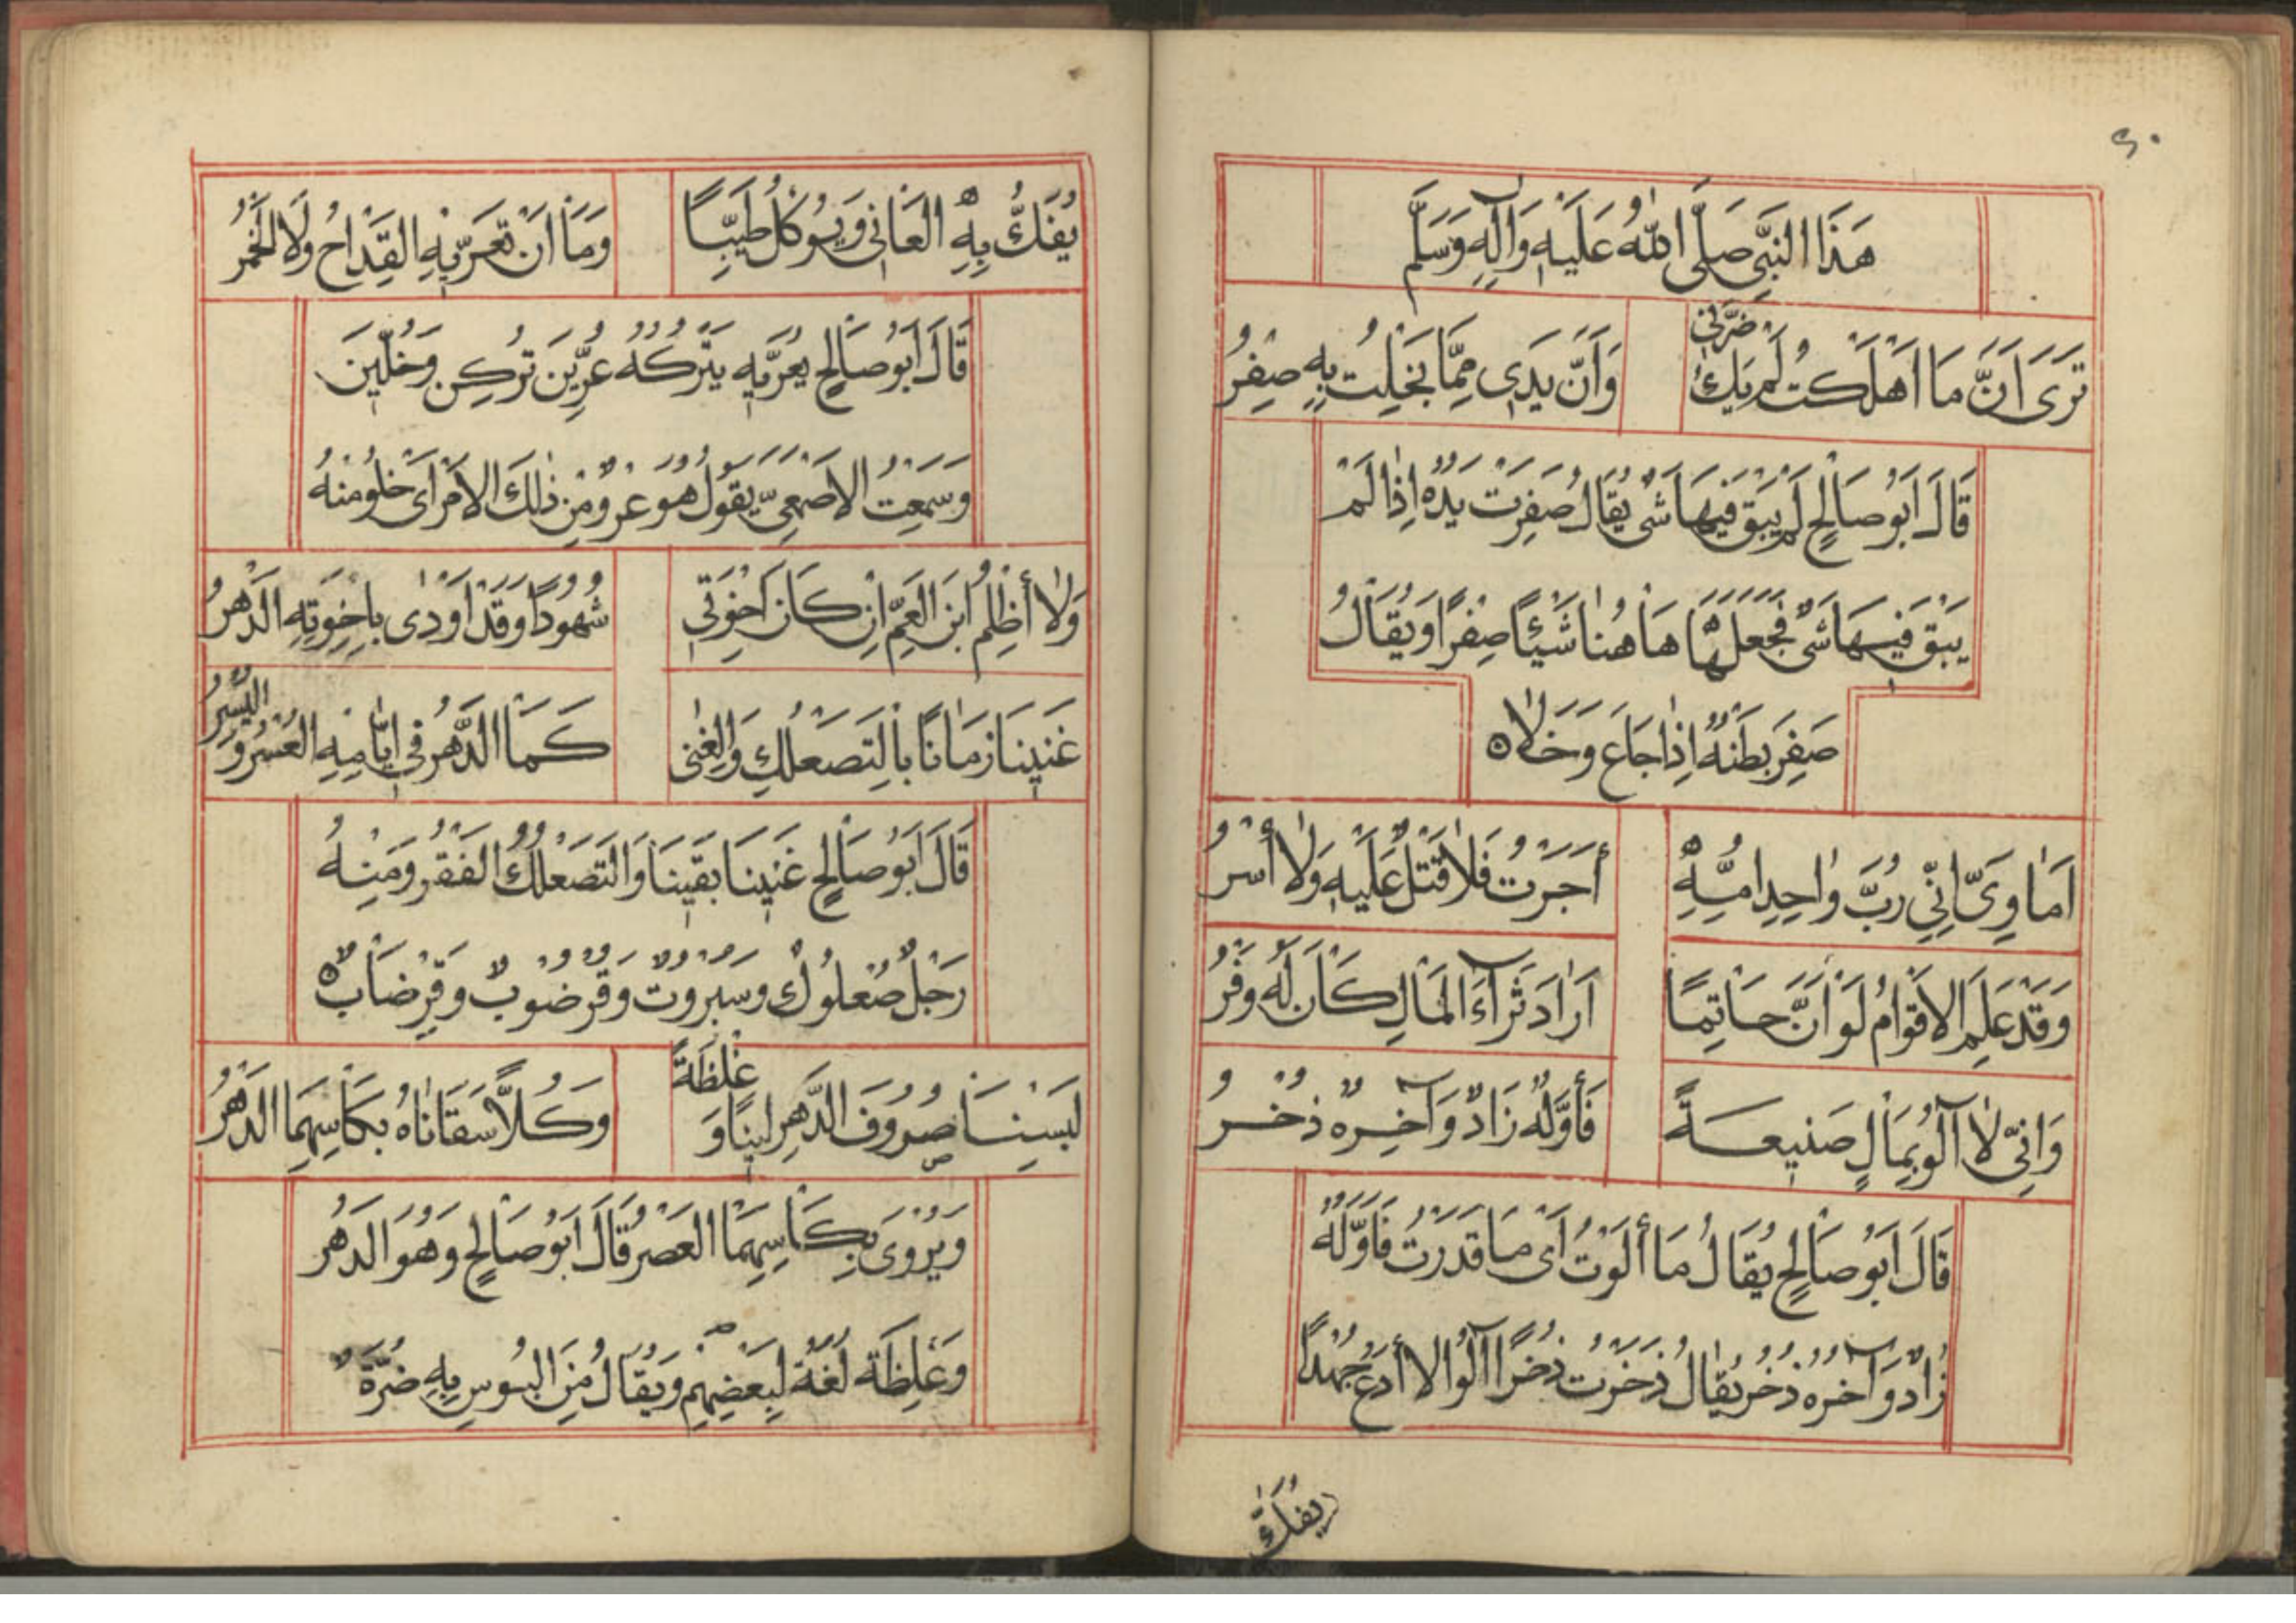 ٤٠
هَذَا النَّبِيِّ صَلَّى اللّٰهُ عَلَيْهِ وَآلِهِ وَسَلَّمَ
تَرَى اَنَّ مَا اَهْلَكْتُ لَمْ يَكُ ضَرَّنِي وَاَنَّ يَدِي مِمَّا بَخِلْتُ بِهِ صِفْرُ
قَالَ اَبُو صَالِحٍ لَمْ يَبْقَ فِيهَا شَيْ يُقَالُ صَفِرَتْ يَدُهُ اِذَا لَمْ
يَبْقَ فِيهَا شَيْ فَجَعَلَهَا هَاهُنَا شَيْئًا صِفْرًا وَيُقَالُ
صَفِرَ بَطْنُهُ اِذَا جَاعَ وَخَلَاه
اَمَاوِيَّ اِنِّي رُبَّ وَاحِدِ اُمِّهِ أَجَرْتُ فَلَا قَتْلٌ عَلَيْهِ وَلَا أَسْرُ
وَقَدْ عَلِمَ الْاَقْوَامُ لَوْ اَنَّ حَاتِمًا اَرَادَ ثَرَاءَ الْمَالِ كَانَ لَهُ وَفْرُ
وَاِنِّي لَا آلُو بِمَالٍ صَنِيعَةً فَأَوَّلُهُ زَادٌ وَآخِرُهُ ذُخْرُ
قَالَ اَبُو صَالِحٍ يُقَالُ مَا أَلَوْتُ اَيْ مَا قَدَرْتُ فَاَوَّلُهُ
زَادٌ وَآخِرُهُ ذُخْرٌ يُقَالُ ذَخَرْتُ ذُخْرًا آلُوا لَا أَدَعُ جُهْدًا
يُفَكُّ
يُفَكُّ بِهِ الْعَانِي وَيُوكَلُ طَيِّبًا وَمَا اَنْ تَعَرَّتْهِ الْقِدَاحُ وَلَا الْخَمْرُ
قَالَ اَبُو صَالِحٍ يُعَرِّيهِ يَتْرُكُهُ عُرِّينَ تُرِكْنَ وَخُلِّينَ
وَسَمِعْتُ الْاَصْمَعِيَّ يَقُولُ هُوَ عِرْوٌ مِنْ ذَلِكَ الْاَمْرِ اَيْ خِلْوٌ مِنْهُ
وَلَا أَظْلِمُ ابْنَ الْعَمِّ اِنْ كَانَ اَخْوَتِي شُهُودًا وَقَدْ اَوْدَى بِاِخْوَتِهِ الدَّهْرُ
غَنِينَا زَمَانًا بِالتَّصَعْلُكِ وَالْغِنَى كَمَا الدَّهْرُ فِي اَيَّامِهِ الْعُسْرُ وَالْيُسْرُ
قَالَ اَبُو صَالِحٍ غَنِينَا بَقِينَا وَالتَّصَعْلُكُ الْفَقْرُ وَمِنْهُ
رَجُلٌ صُعْلُوكٌ وَسُبْرُوتٌ وَقُرْضُوبٌ وَقِرْضَابٌ ه
لَبِسْنَا صُرُوفَ الدَّهْرِ لِينًا وَغِلْظَةً وَكُلًّا سَقَانَاهُ بِكَأْسِهِمَا الدَّهْرُ
وَيُرْوَى بِكَاسِهِمَا الْعَصْرُ قَالَ اَبُو صَالِحٍ وَهُوَ الدَّهْرُ
وَغَلِظَة لُغَةٌ لِبَعْضِهِمْ وَيُقَالُ مِنَ الْبُوسِ بِهِ ضَرَّةٌ